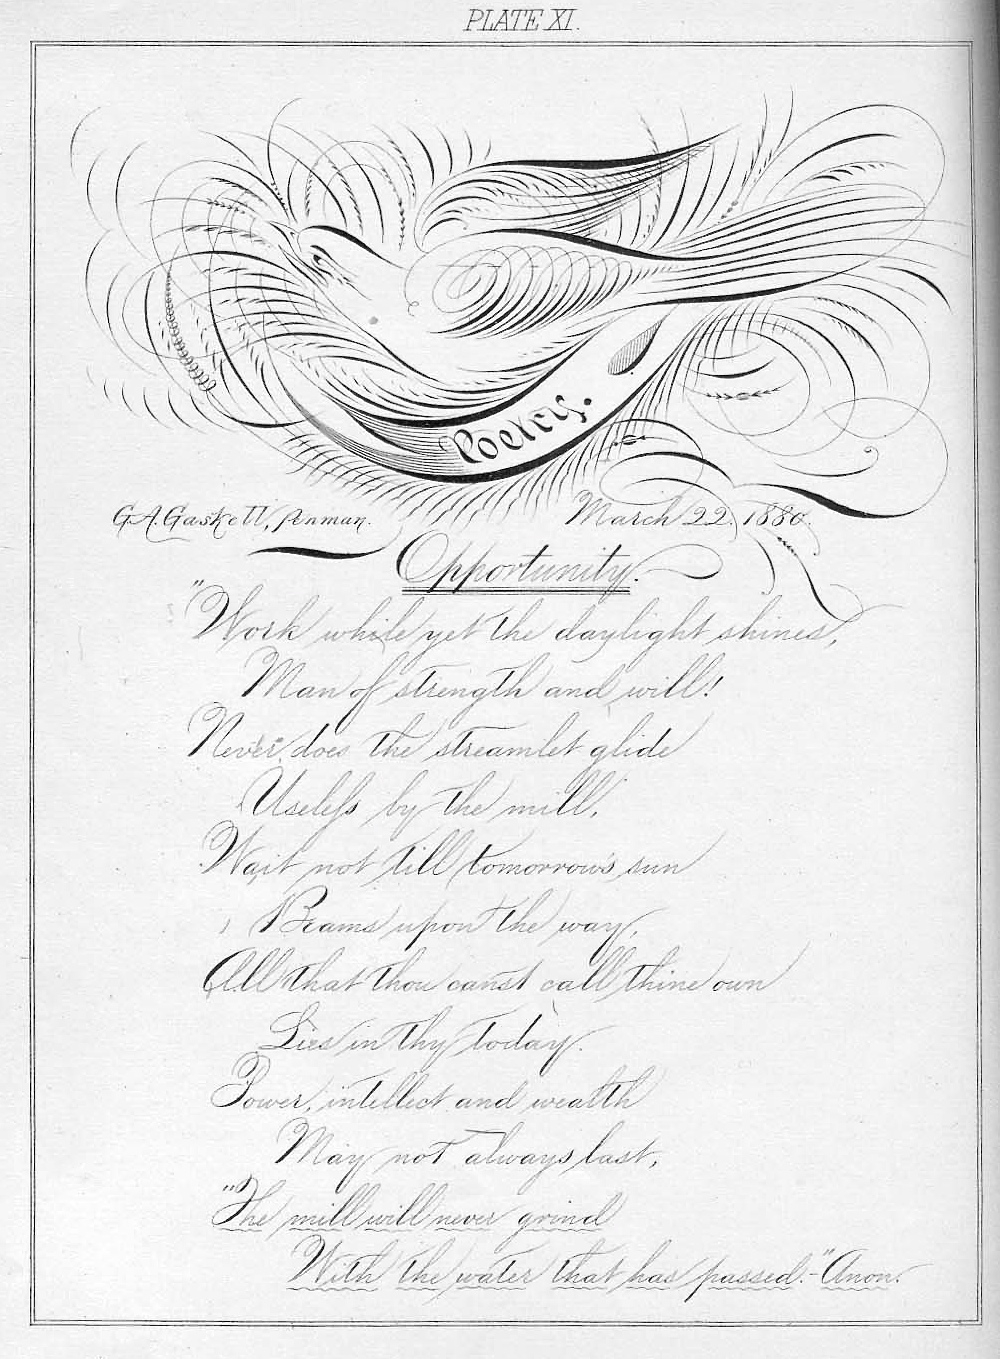 PLATE XI.
Poetry.
G.A. Gaskell, Penman. March 22. 1880.
Opportunity.
"Work while yet the daylight shines,
Man of strength and will!
Never does the streamlet glide
Useless by the mill,
Wait not till tomorrow's sun
Beams upon the way,
All that thou canst call thine own
Lies in thy today.
Power, intellect and wealth
May not always last,
"The mill will never grind
With the water that has passed."-Anon.